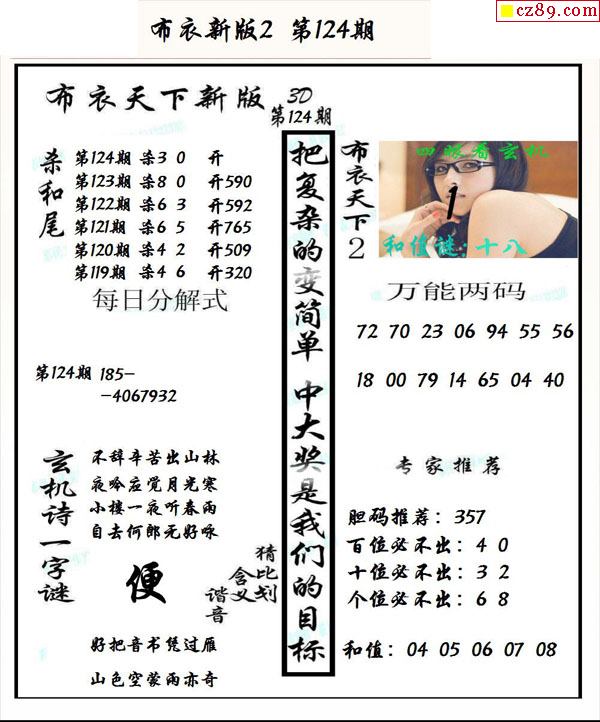 cz89.com
布衣新版2 第124期
布衣天下新版 3D
第124期
杀和尾
第124期 杀3 0 开
第123期 杀8 0 开590
第122期 杀6 3 开592
第121期 杀6 5 开765
第120期 杀4 2 开509
第119期 杀4 6 开320
每日分解式
第124期 185-
-4067932
玄机诗一字谜
不辞辛苦出山林
夜吟应觉月光寒
小楼一夜听春雨
自去何郎无好咏
便
猜比划
含义
谐音
好把音书凭过雁
山色空蒙雨亦奇
把复杂的变简单 中大奖是我们的目标
布衣天下2
四眼看玄机
1
和值谜:十八
万能两码
72 70 23 06 94 55 56
18 00 79 14 65 04 40
专家推荐
胆码推荐:357
百位必不出:4 0
十位必不出:3 2
个位必不出:6 8
和值:04 05 06 07 08